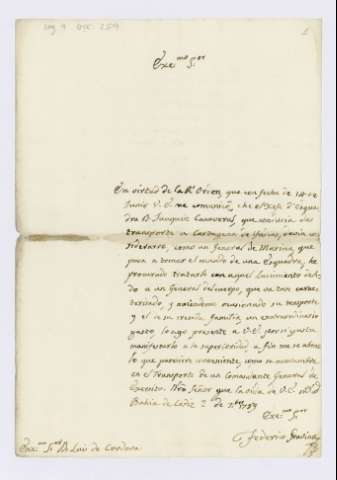 Exc.mo S.or
En virtud de la R.l Orden, que con fecha de 14 de
Junio V. E. me comunicó, que el Xefe d'Esqua
dra D.
transporte a Cartagena de Yndias,
como un General de Marina, que
para a tomar el mando de una Esquadra, he
procurado tratarle con aquel lucimiento
do a un General del cuerpo, que va tan carac
terizado, y haviendome ocasionado su trasporte
y el de su crecida familia, un extraordinario
gasto, lo hago presente a V. E. por si gusta
manifestarlo a la superioridad, a fin me se abone
lo que pareciere conveniente, como se acostumbra
en el Transporte de un Comandante General de
Exercito. Nro Señor que la vida de V. E. m.s a.s
Bahia de Cadiz 2 de 7.bre 1789
Exc.mo S.or
Federico Gravina
Exc.mo S.or D. Luis de Cordova